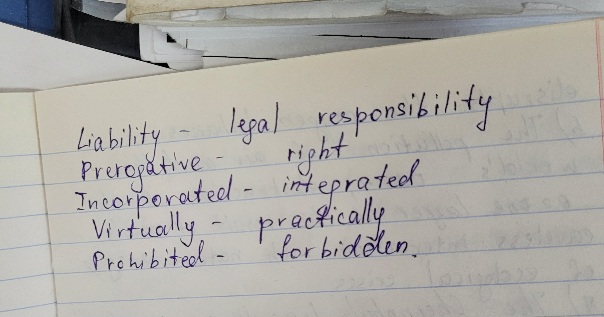 Liability - legal responsibility
Prerogative - right
Incorporated - integrated
Virtually - practically
Prohibited - forbidden.